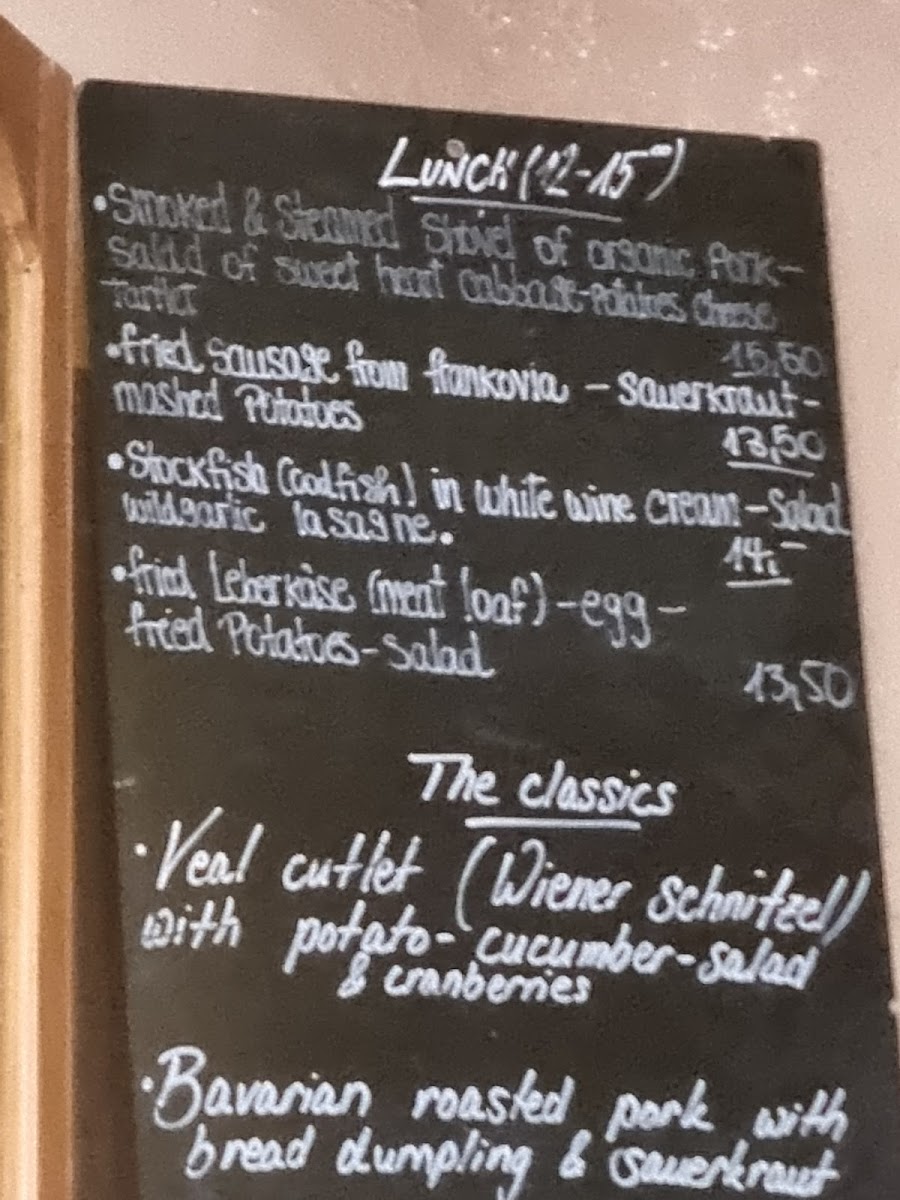 Lunch (12-15⁰⁰)
• Smoked & Steamed Shovel of organic Pork-
Salad of sweet heart cabbage-Potatoes cheese
Tartlet
15,50
• fried Sausage from frankovia - sauerkraut-
mashed Potatoes
13,50
• Stockfish (codfish) in white wine cream-Salad
wildgarlic lasagne.
14,-
• fried Leberkäse (meat loaf)-egg-
fried Potatoes-Salad
13,50
The classics
• Veal cutlet (Wiener Schnitzel)
with potato-cucumber-salad
& cranberries
• Bavarian roasted pork with
bread dumpling & Sauerkraut